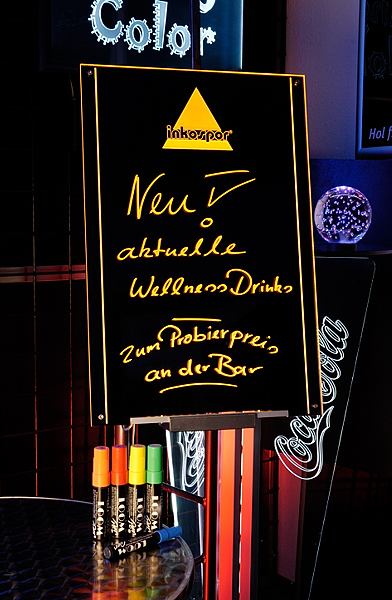 Color
inkospor
Hol f
Neu!
aktuelle
Wellness Drinks
zum Probierpreis
an der Bar
Coca-Cola